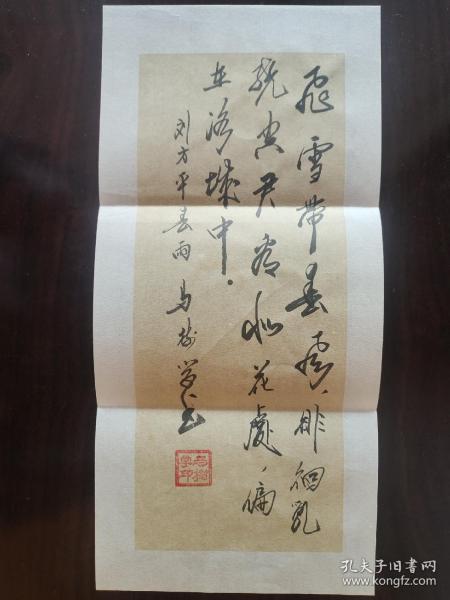 飛雪帶春風、徘徊乱
繞空君看似花處、偏
在洛城中。
刘方平春雨 马树学书
马树学印
孔夫子旧书网
www.kongfz.com